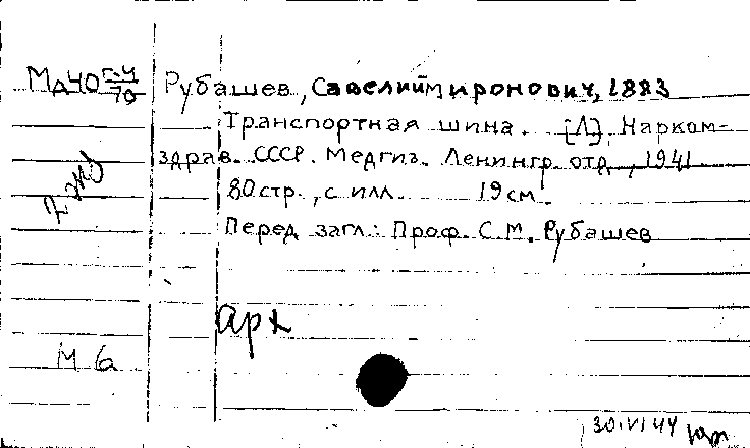 МД40 Г-4/70
Рубашев, Савелий Миронович, 1883
Транспортная шина. [Л], Нарком-
здрав. СССР. Медгиз. Ленингр. отд., 1941
80 стр., с илл. 19 см.
2 экз
Перед загл.: Проф. С. М. Рубашев
арх
М 6
30.VI 44